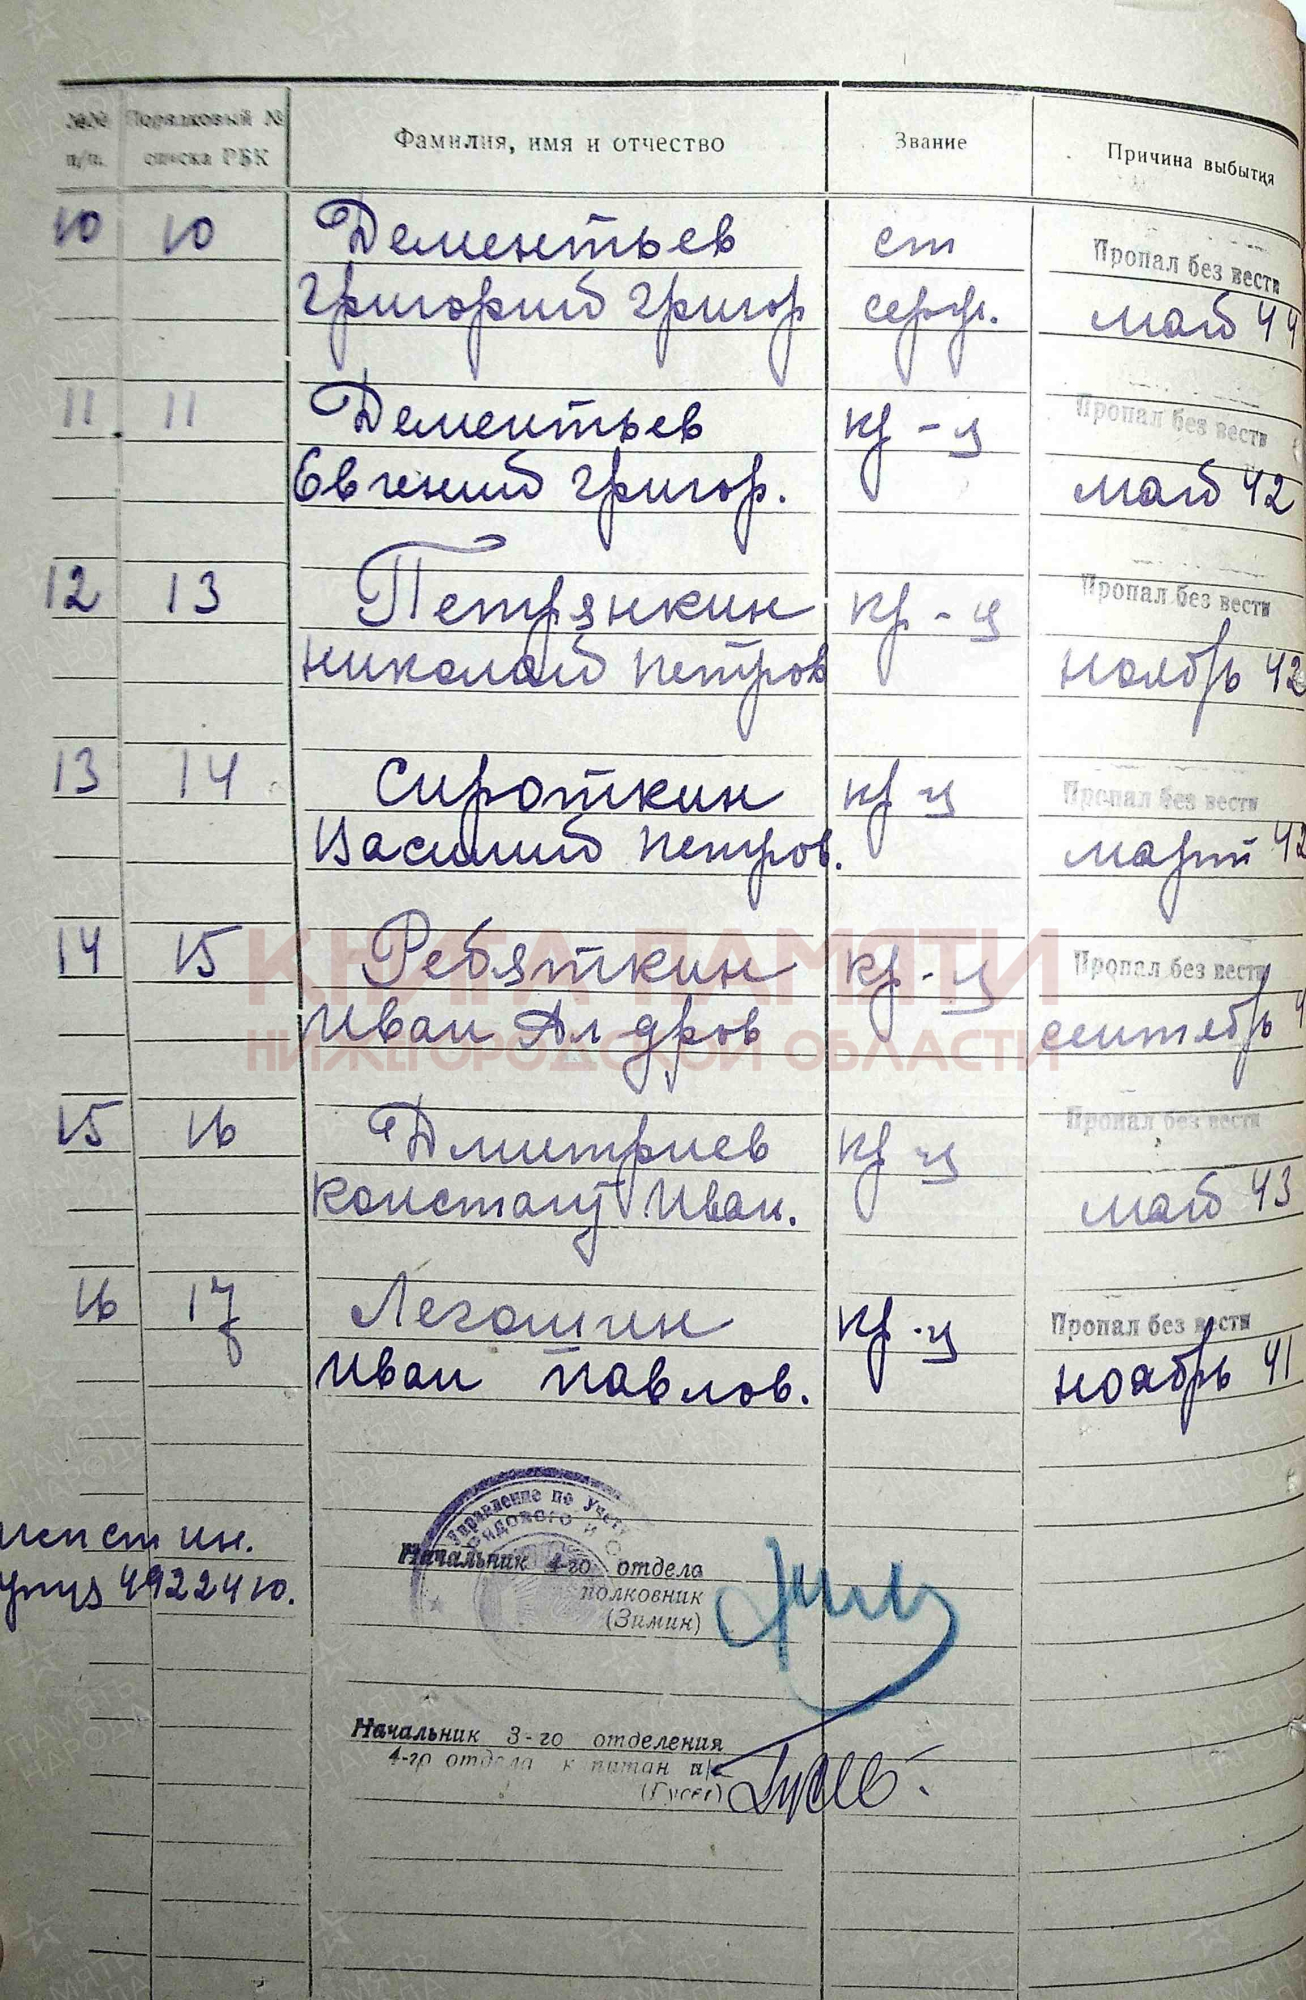 №№ п/п.
Порядковый № списка РВК
Фамилия, имя и отчество
Звание
Причина выбытия
10 10 Дементьев ст Пропал без вести
Григорий Григор серж. май 44
11 11 Дементьев кр-ц Пропал без вести
Евгений Григор. май 42
12 13 Петрянкин кр-ц Пропал без вести
Николай Петров ноябрь 42
13 14 Сироткин кр-ц Пропал без вести
Василий Петров. март 42
14 15 Ребяткин кр-ц Пропал без вести
Иван Ал-дров сентябрь 4
КНИГА ПАМЯТИ
НИЖЕГОРОДСКОЙ ОБЛАСТИ
15 16 Дмитриев кр-ц Пропал без вести
Констант Иван. май 43
16 17 Легошин кр-ц Пропал без вести
Иван Павлов. ноябрь 41
Управление по Учету
рядового и с
ин.
49224ю.
Начальник 4-го отдела
полковник
(Зимин)
Начальник 3-го отделения
4-го отдела капитан а/с
(Гусев)